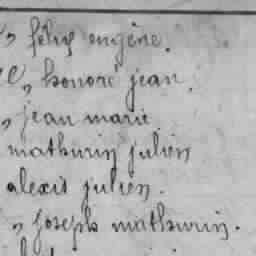 „ félix eugène.
„ honoré jean.
„ jean marie
mathurin julien
alexis julien.
„ joseph mathurin.